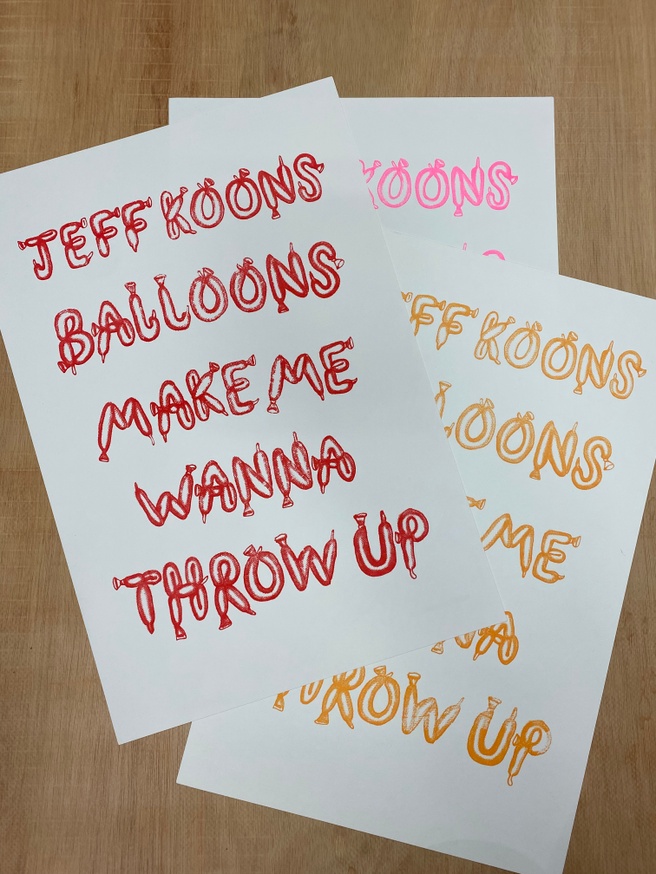 JEFF KOONS
BALLOONS
MAKE ME
WANNA
THROW UP
KOONS
FF KOONS
LOONS
ME
THROW UP